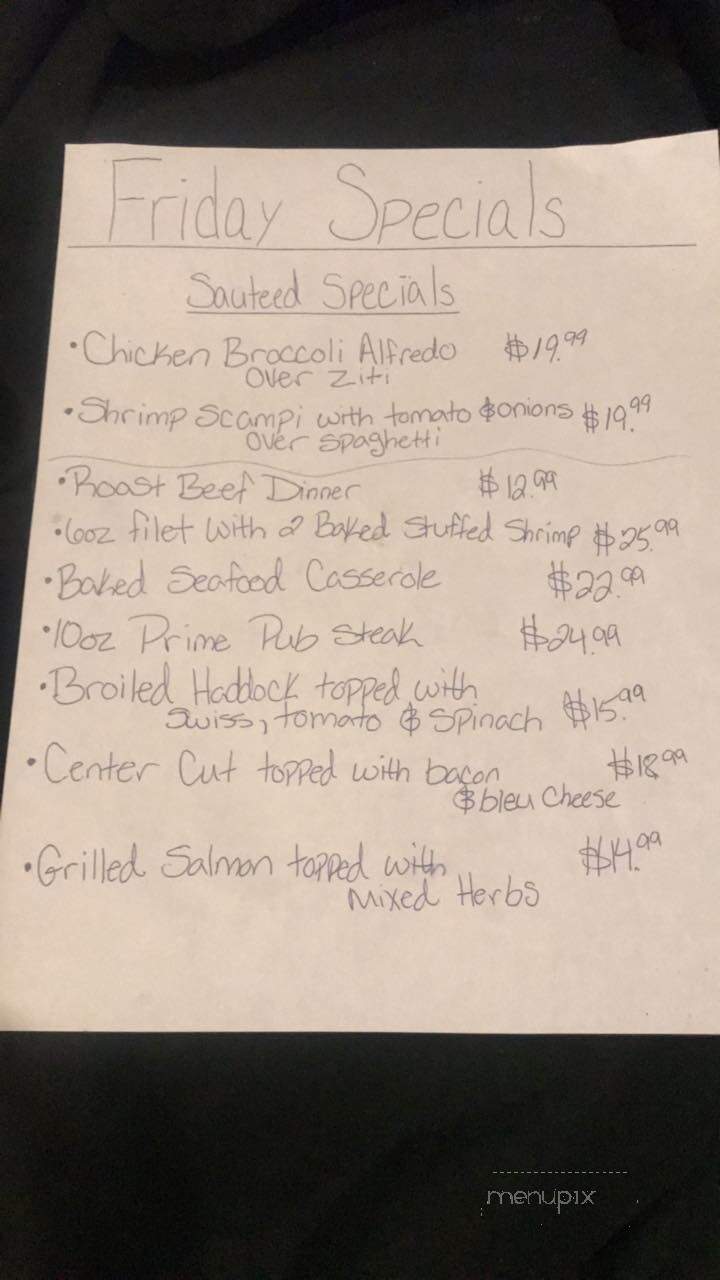 Friday Specials
Sauteed Specials
•Chicken Broccoli Alfredo $19.99
over Ziti
•Shrimp Scampi with tomato & onions $19.99
over spaghetti
•Roast Beef Dinner $12.99
•6oz filet with 2 Baked Stuffed Shrimp $25.99
•Baked Seafood Casserole $22.99
•10oz Prime Pub Steak $24.99
•Broiled Haddock topped with
Swiss, tomato & Spinach $15.99
•Center Cut topped with bacon $18.99
& bleu Cheese
•Grilled Salmon topped with $14.99
Mixed Herbs
menupix